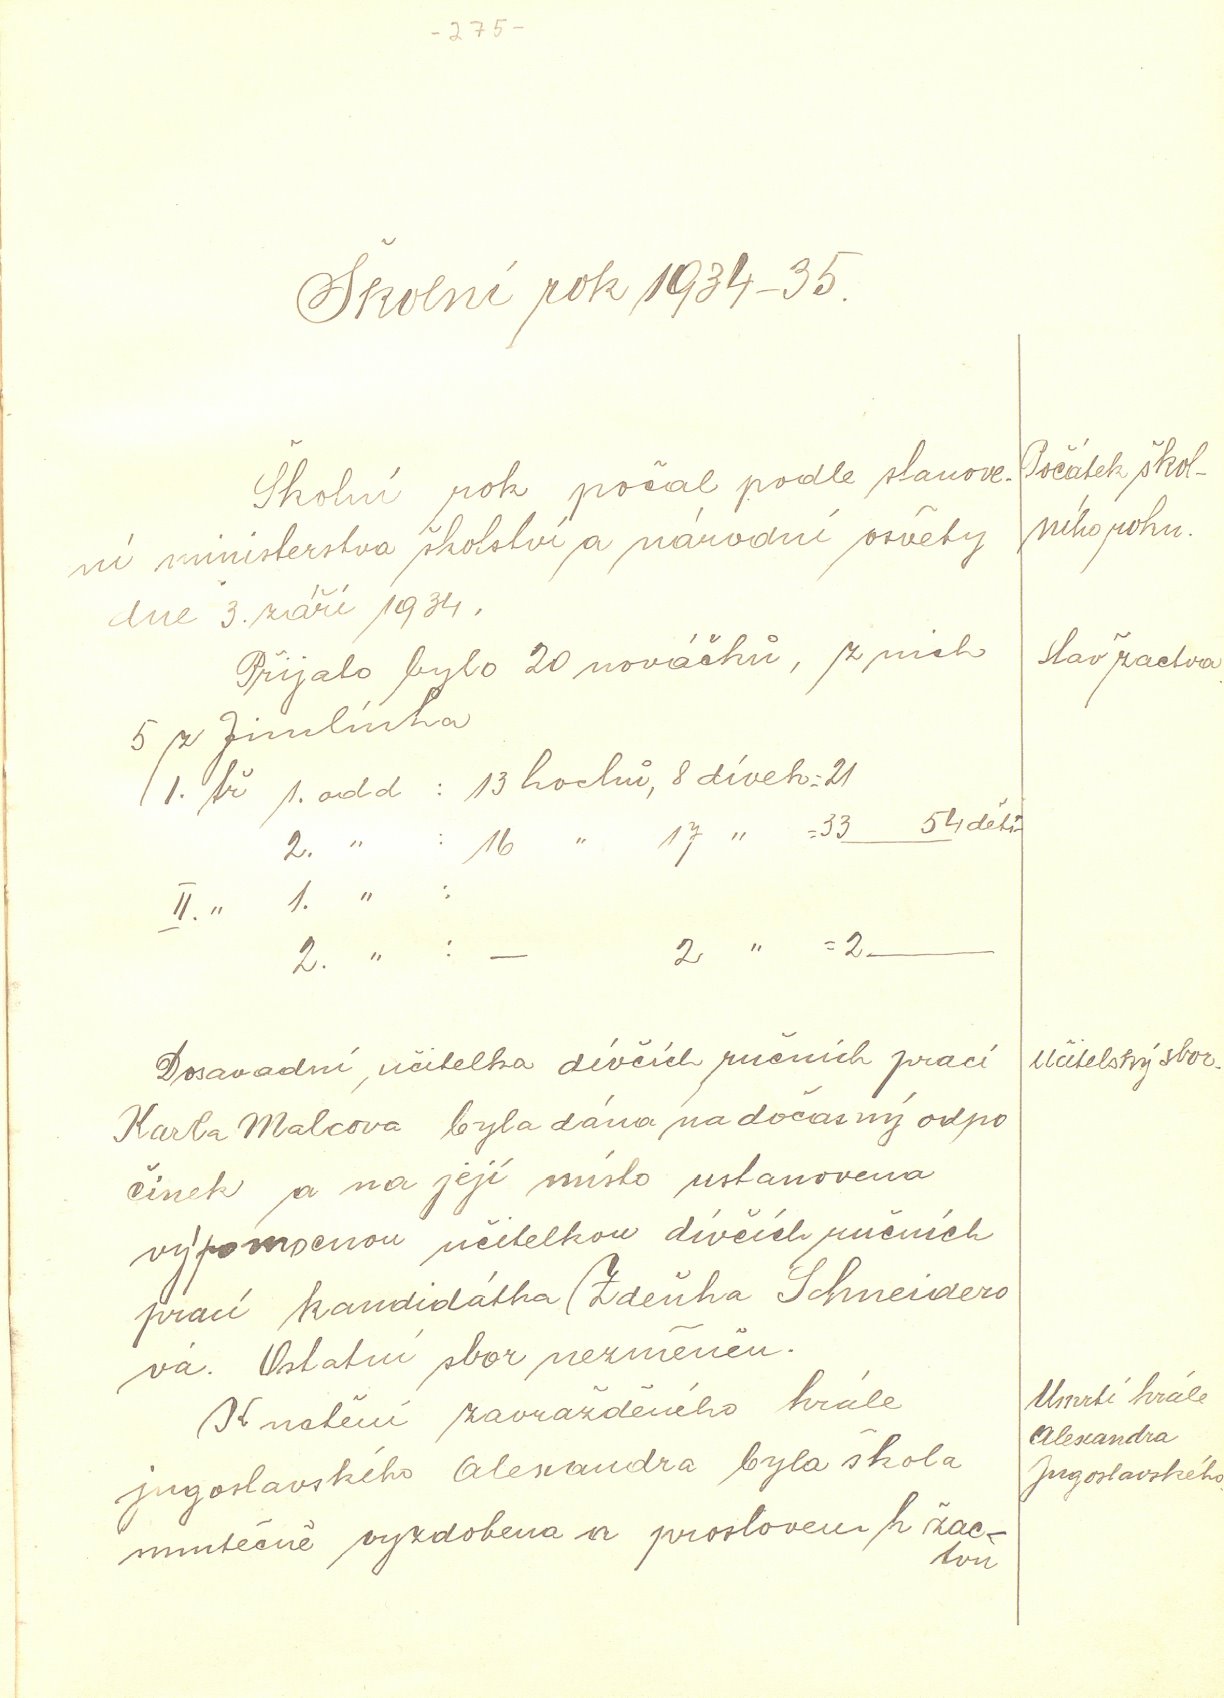 -275-
Školní rok 1934-35.
Školní rok počal podle stanove-
ní ministerstva školství a národní osvěty
dne 3. září 1934.
Počátek škol-
ního roku.
Přijato bylo 20 nováčků, z nich
5 z Jimlínka
stav žactva.
1. tř 1. odd : 13 hochů, 8 dívek = 21
2. " : 16 " 17 " = 33 54 dětí
II. " 1. " :
2. " : — 2 " = 2
Dosavadní učitelka dívčích ručních prací
Karla Malcova byla dána na dočasný odpo
činek a na její místo ustanovena
výpomocnou učitelkou dívčích ručních
prací kandidátka Zdeňka Schneidero
vá. Ostatní sbor nezměněn.
Učitelský sbor.
K uctění zavražděného krále
jugoslavského Alexandra byla škola
smutečně vyzdobena a proslovem k žac-
tvu
Úmrtí krále
Alexandra
Jugoslavského.